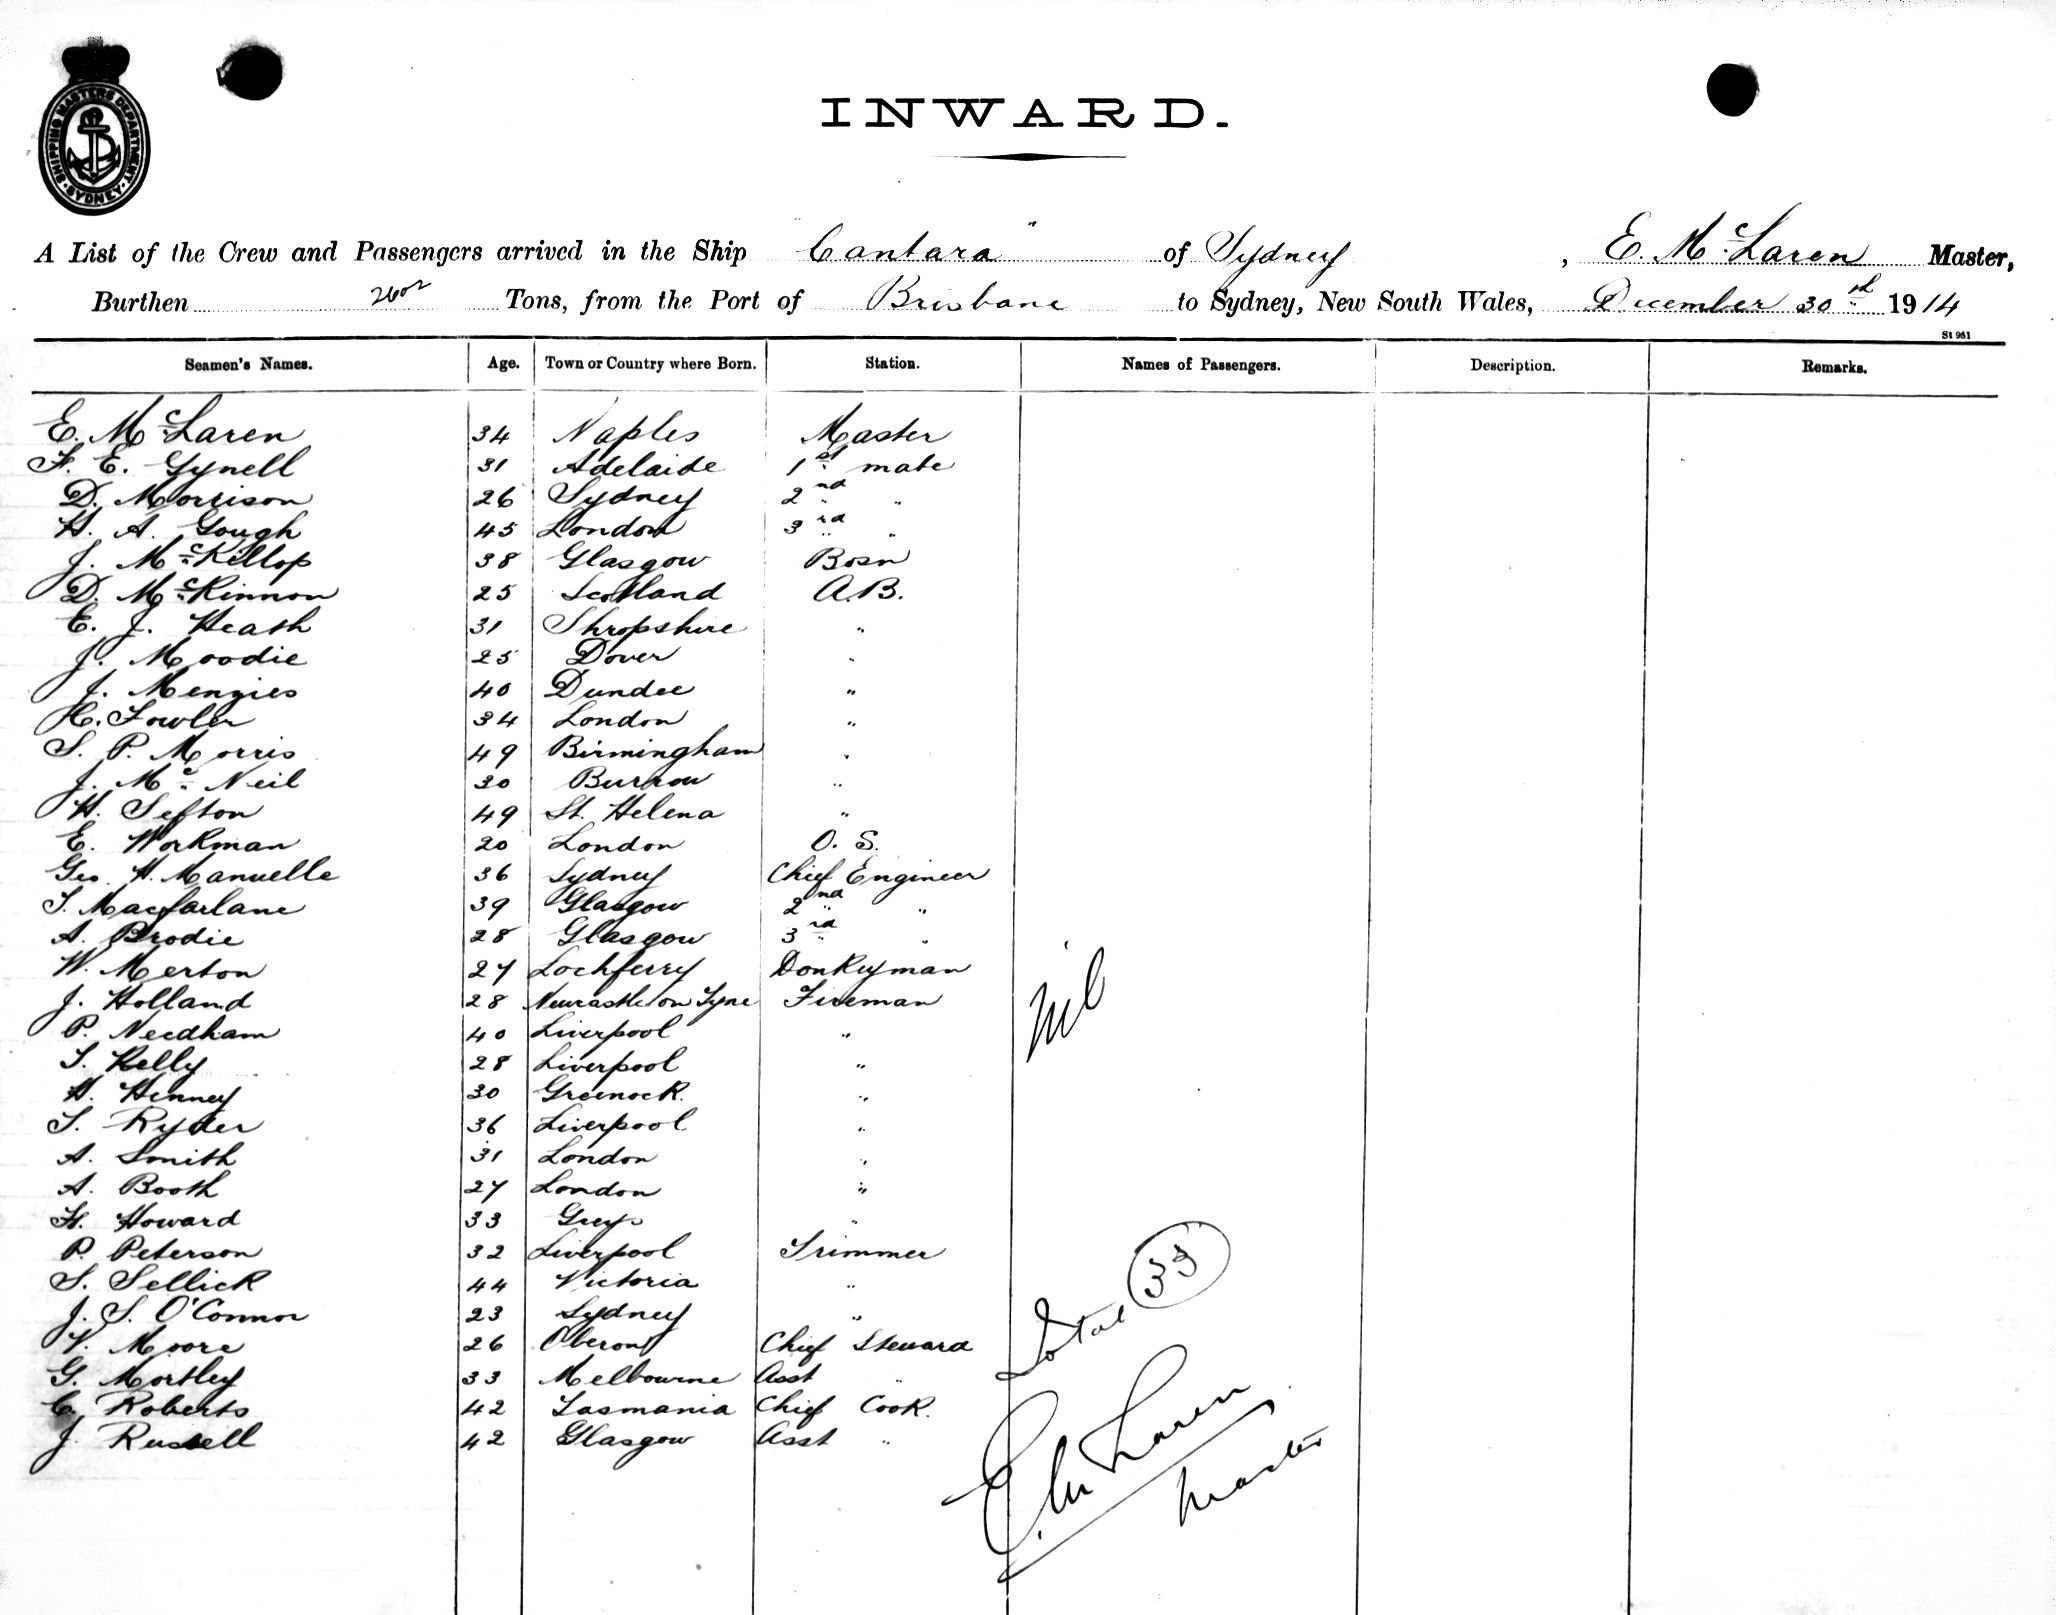 SHIPPING MASTERS DEPARTMENT · SYDNEY ·
INWARD.
A List of the Crew and Passengers arrived in the Ship "Cantara" of Sydney, E. McLaren Master,
Burthen Tons, from the Port of Brisbane to Sydney, New South Wales, December 30th 1914
St 951
Seamen's Names. Age. Town or Country where Born. Station. Names of Passengers. Description. Remarks.
E. McLaren 34 Naples Master
F. E. Gynell 31 Adelaide 1st mate
D. Morrison 26 Sydney 2nd "
H. A. Gough 45 London 3rd "
J. McKillop 38 Glasgow Bosn
D. McKinnon 25 Scotland A.B.
E. J. Heath 31 Shropshire "
J. Moodie 25 Dover "
J. Menzies 40 Dundee "
H. Fowler 34 London "
S. P. Morris 49 Birmingham "
J. McNeil 30 Burrow "
H. Sefton 49 St. Helena "
E. Workman 20 London O. S.
Geo. H. Manuelle 36 Sydney Chief Engineer
T. Macfarlane 39 Glasgow 2nd "
A. Brodie 28 Glasgow 3rd "
W. Merton 27 Lochferry Donkeyman
J. Holland 28 Newcastle on Tyne Fireman
P. Needham 40 Liverpool "
T. Kelly 28 Liverpool "
H. Henney 30 Greenock "
T. Ryder 36 Liverpool "
A. Smith 31 London "
A. Booth 27 London "
H. Howard 33 Grays "
P. Peterson 32 Liverpool Trimmer
S. Sellick 44 Victoria "
J. S. O'Connor 23 Sydney "
V. Moore 26 Oberon Chief Steward
G. Mortley 33 Melbourne Asst "
C. Roberts 42 Tasmania Chief Cook.
J. Russell 42 Glasgow Asst "
Nil
Total 33
E. McLaren
Master